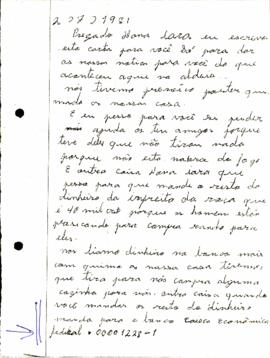 2 07 1981
Prezado Dona Lara eu escrevo
esta carta para você só para dar
as nossas notisa para você do que
aconteceu aqui na aldeia.
nós tivemo prenoico porter quei
mado os nossas casa.
E eu pesso para você se puder
ajuda os teu amigos porque
teve deles que não tirou nada
porque não esta natera do fogo
E outra coisa dona Lara que
pesso para que mande o resto do
dinheiro da roça que
é 40 mil cr$ porque os homem estão
presicando para compra rancho para
eles.
nos tiamo dinheiro no banco mais
com queima os nossas casa tivemos
que tira para nós compra alguma
cozinha para nós. outra coisa quando
você mandar os resto do dinheiro
manda para o banco Caixa Econômica
federal. 00001228-1